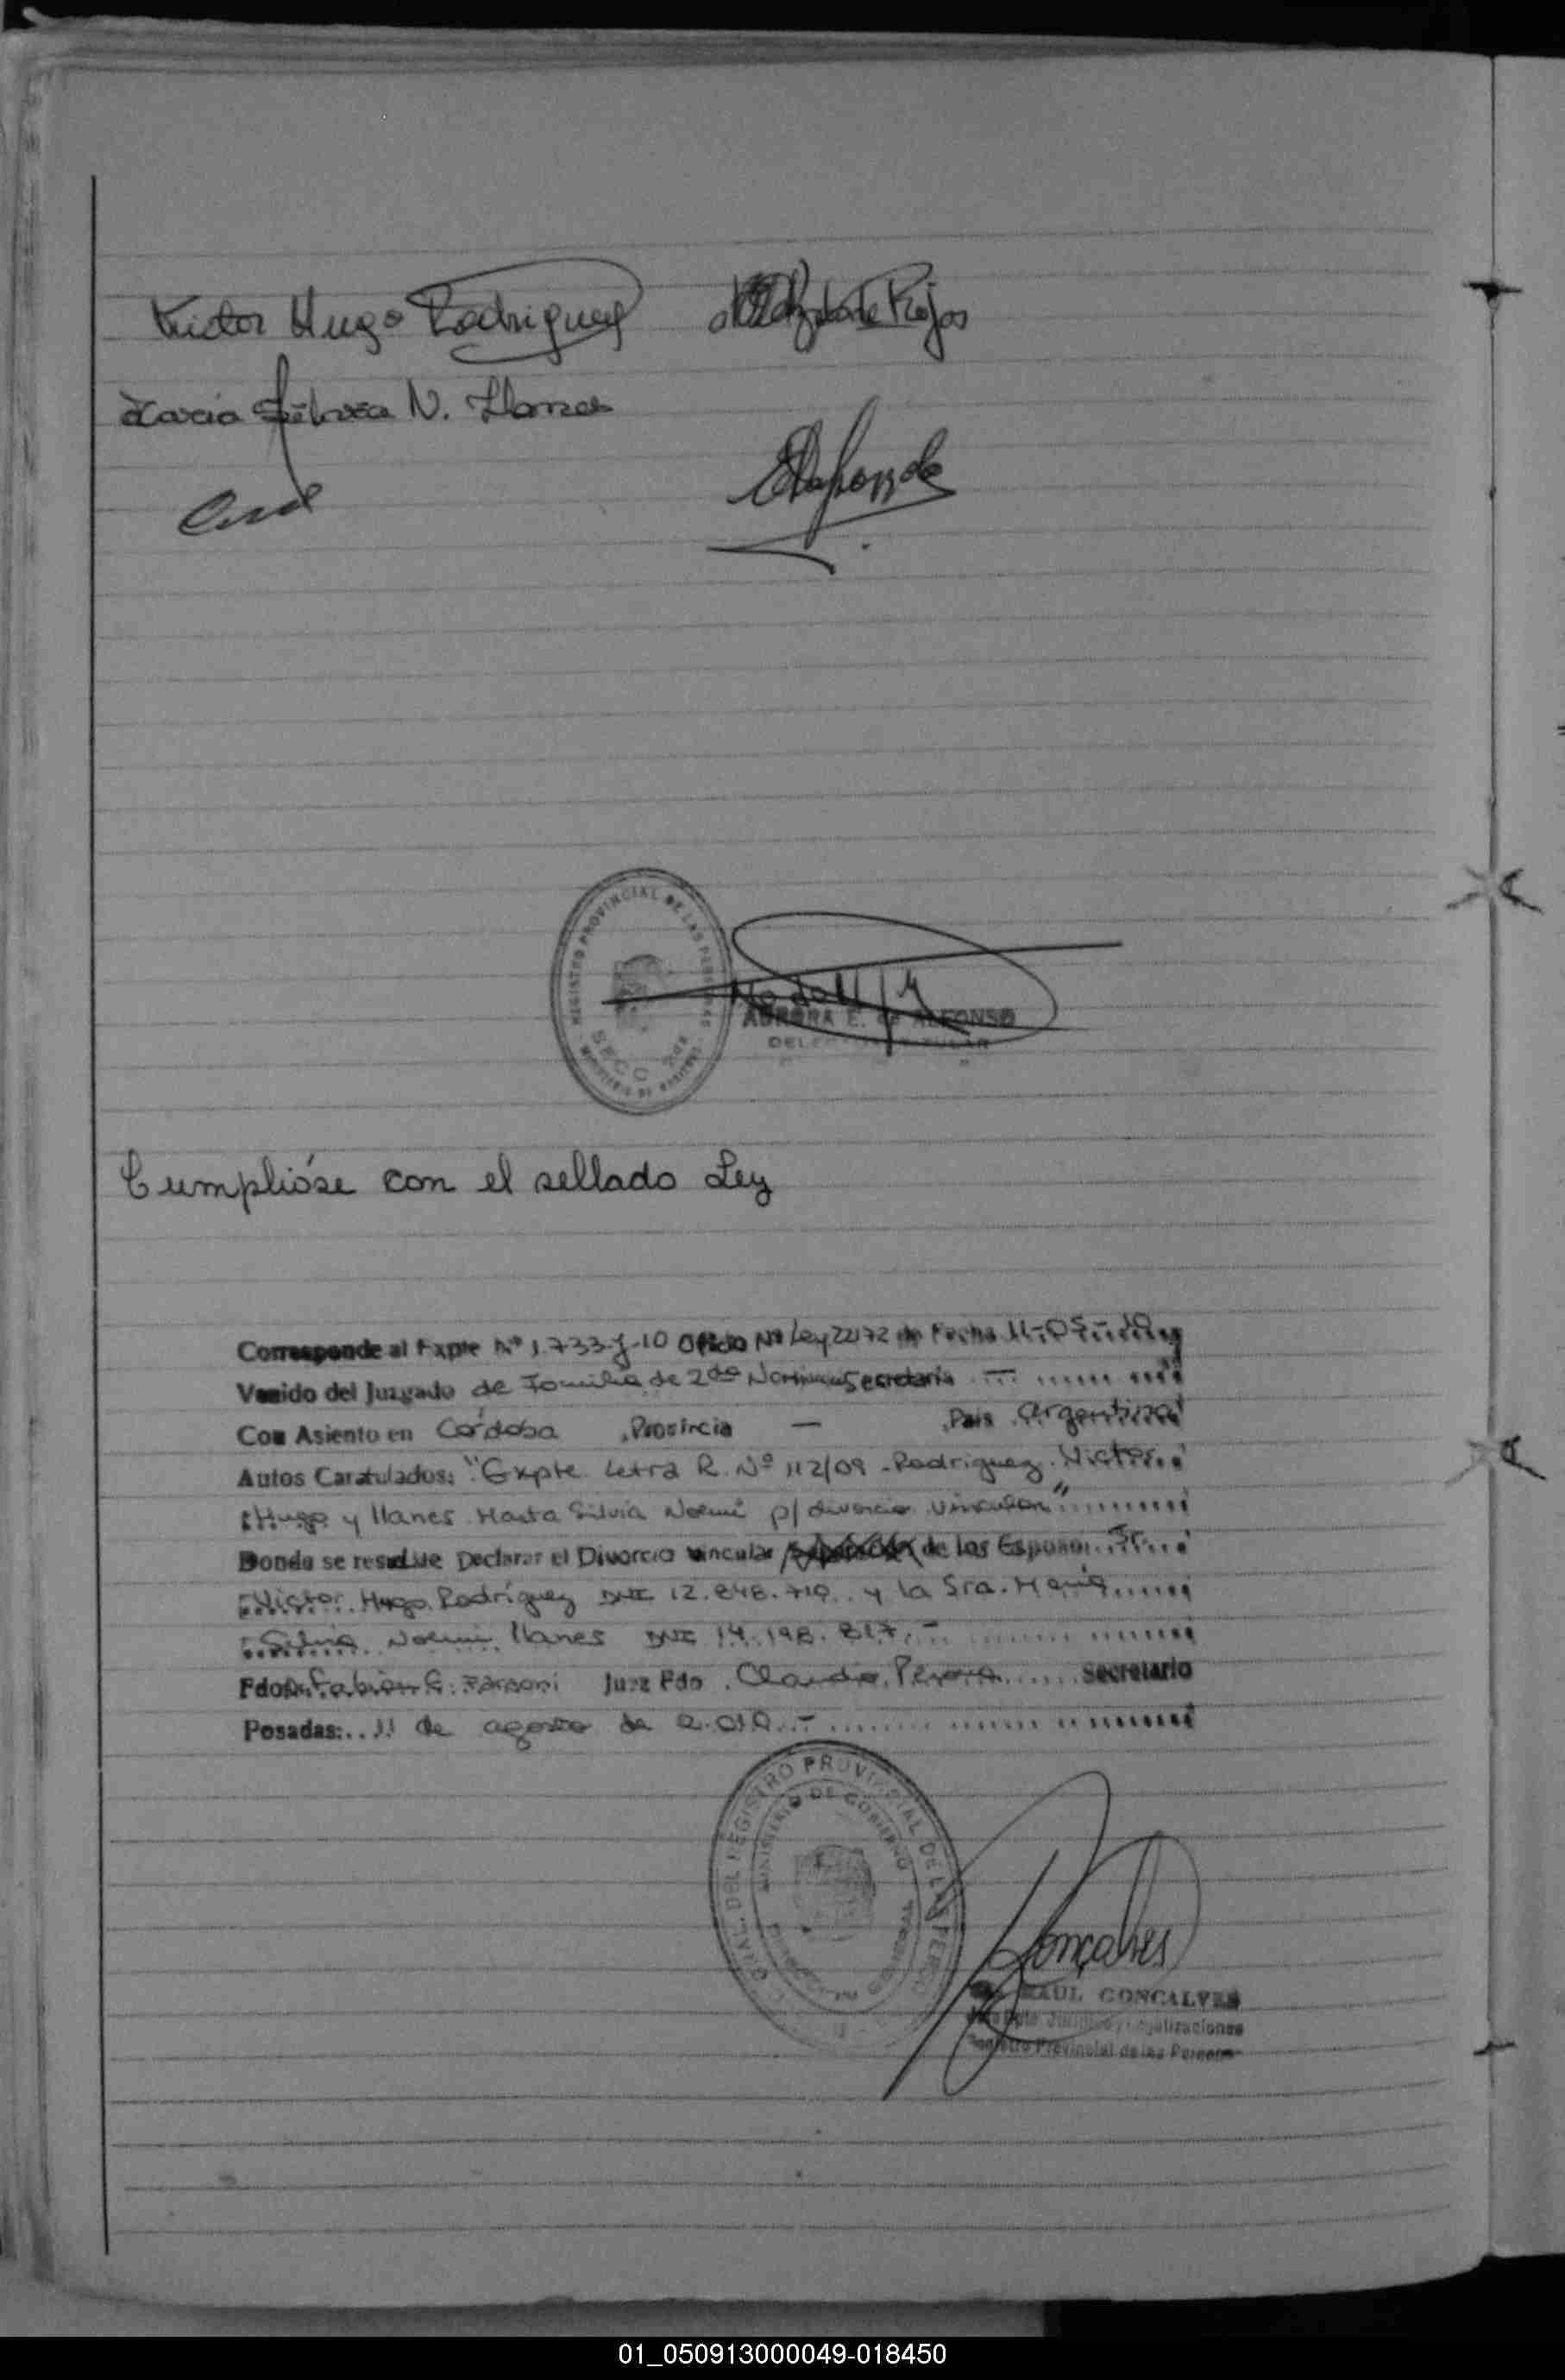 Victor Hugo Rodriguez
de Rojas
María Silvia N. Llanes
REGISTRO PROVINCIAL DE LAS PERSONAS
SECC
AURORA E. de ALFONSO
DELEGADA TITULAR
Cumplióse con el sellado Ley
Corresponde al Expte Nº 1.733-J-10 Oficio Nº Ley 22172 de Fecha 11-05-10
Venido del Juzgado de Familia de 2da Nomin. Secretaría
Con Asiento en Córdoba , Provincia — , País Argentina
Autos Caratulados: "Expte. Letra R. Nº 112/09 - Rodriguez Victor
Hugo y llanes Marta Silvia Noemí p/ divorcio vincular"
Donde se resuelve Declarar el Divorcio vincular de los Esposos Sr.
Victor Hugo Rodríguez DNI 12.848.710 y la Sra. María
Silvia Noemi llanes DNI 14.198.817.-
Fdo Dr. Fabian E. Juez Fdo. Claudio Secretario
Posadas: 11 de agosto de 2.010.-
GRAL. DEL REGISTRO PROVINCIAL DE LAS PERSO
MINISTERIO DE GOBIERNO
Gonçalves
RAUL GONCALVES
Legalizaciones
Registro Provincial de las Personas
01_050913000049-018450